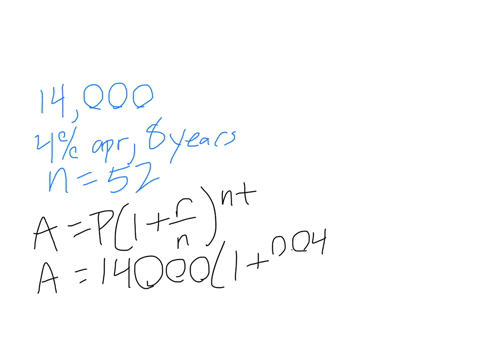 14,000
4% apr, 8 years
n = 52
A = P(1 + r/n)^nt
A = 14000(1 + 0.04